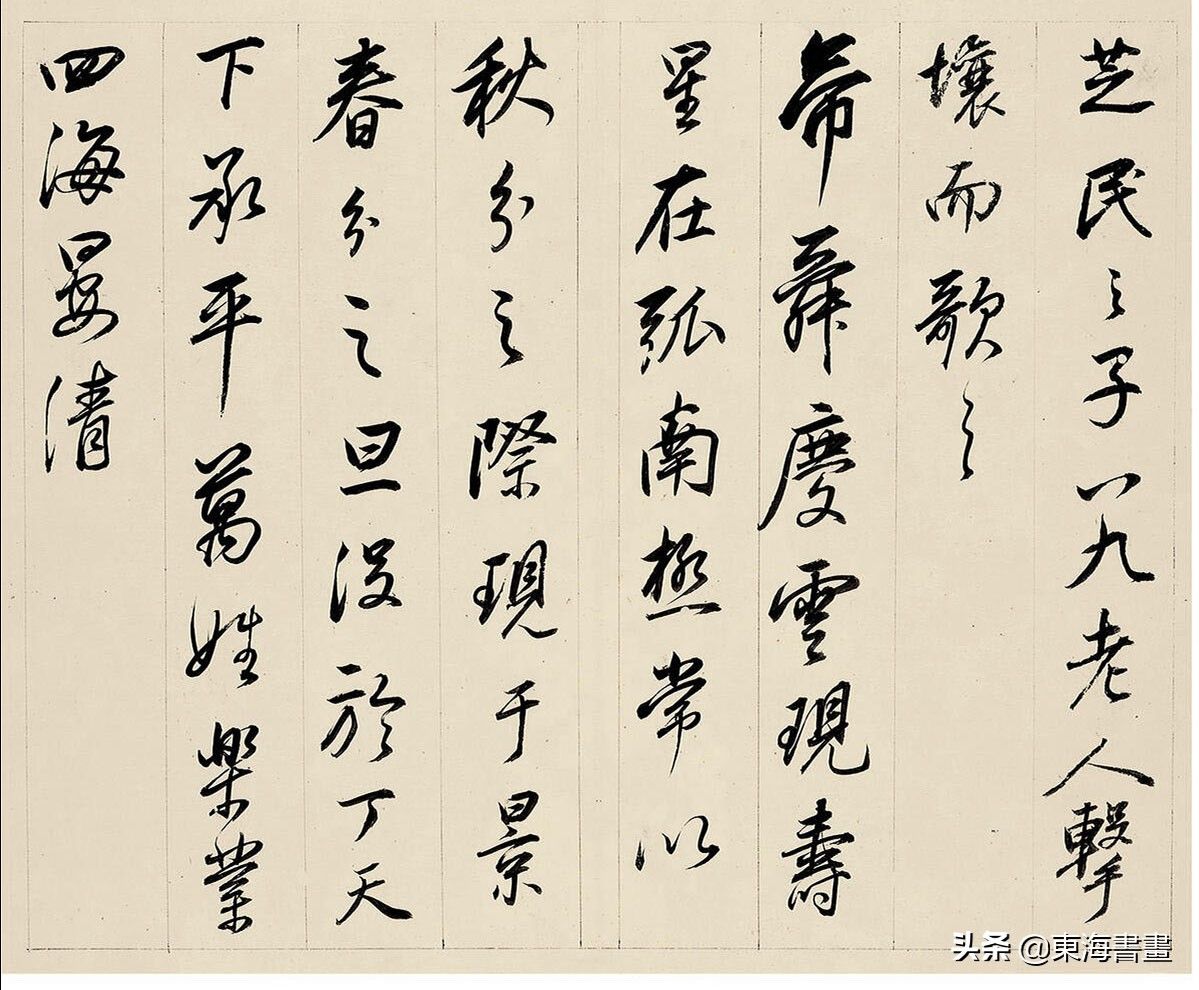 芝民之子八九老人擊
壤而歌之
帝舜慶雲現壽
星在弧南極常以
秋分之際現于景
春分之旦沒於丁天
下承平萬姓樂業
四海晏清
头条 @東海書畫